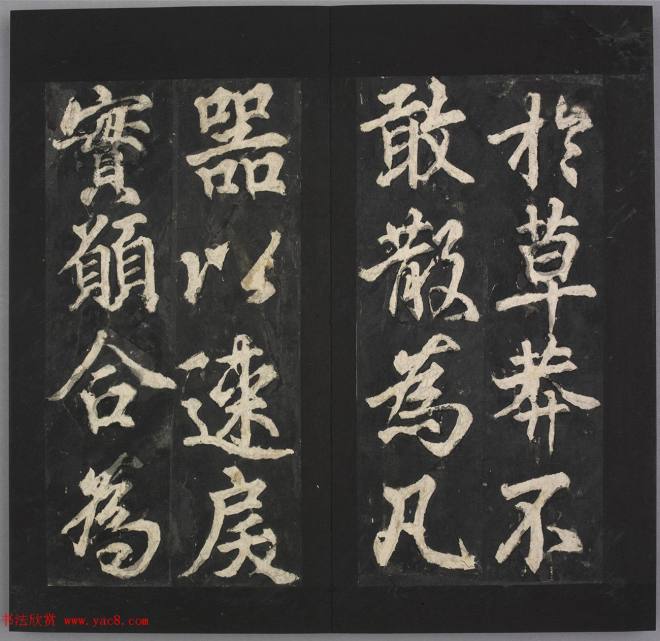 於草莽不
敢散為凡
器以速戾
實願合為
书法欣赏 www.yac8.com